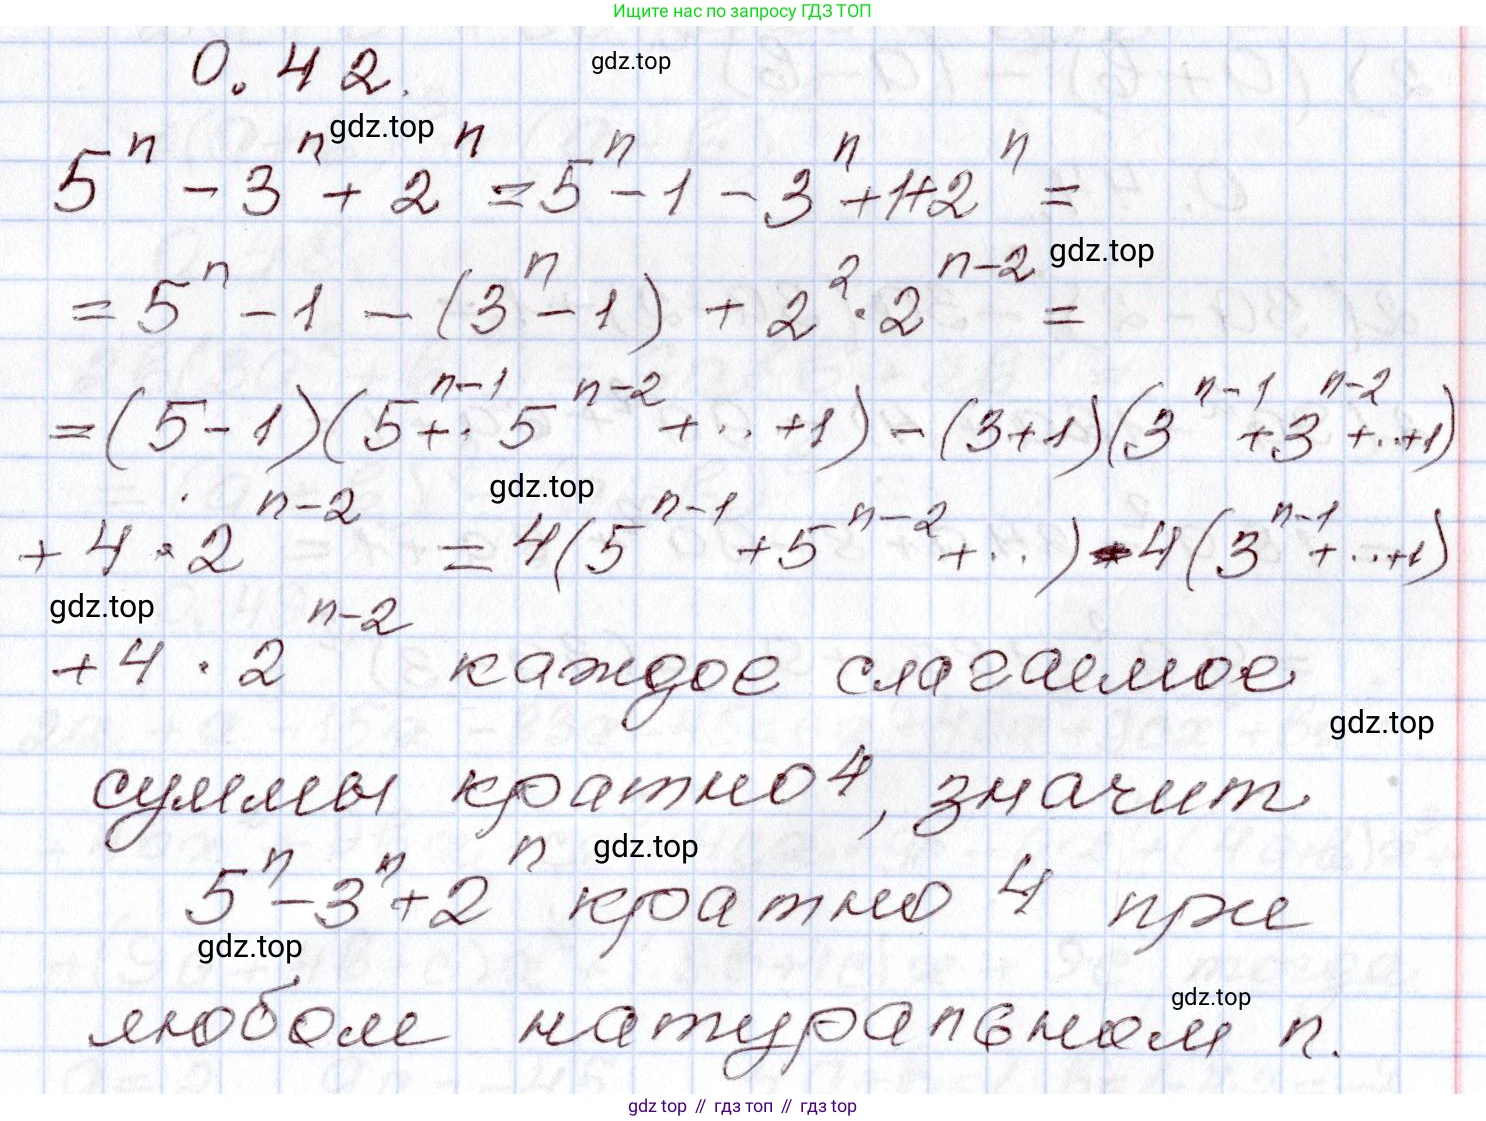 Ищите нас по запросу ГДЗ ТОП
0.42.
gdz.top
gdz.top
5ⁿ - 3ⁿ + 2ⁿ = 5ⁿ - 1 - 3ⁿ + 1 + 2ⁿ =
gdz.top
= 5ⁿ - 1 - (3ⁿ - 1) + 2² · 2ⁿ⁻² =
= (5 - 1)(5ⁿ⁻¹ + · 5ⁿ⁻² + .. + 1) - (3 + 1)(3ⁿ⁻¹ + 3ⁿ⁻² + .. + 1)
gdz.top
+ 4 · 2ⁿ⁻² = 4(5ⁿ⁻¹ + 5ⁿ⁻² + ..) - 4(3ⁿ⁻¹ + ... + 1)
gdz.top
+ 4 · 2ⁿ⁻² каждое слагаемое
gdz.top
суммы кратно 4, значит
gdz.top
5ⁿ - 3ⁿ + 2ⁿ кратно 4 при
gdz.top
любом натуральном n.
gdz.top
gdz top // гдз топ // gdz top